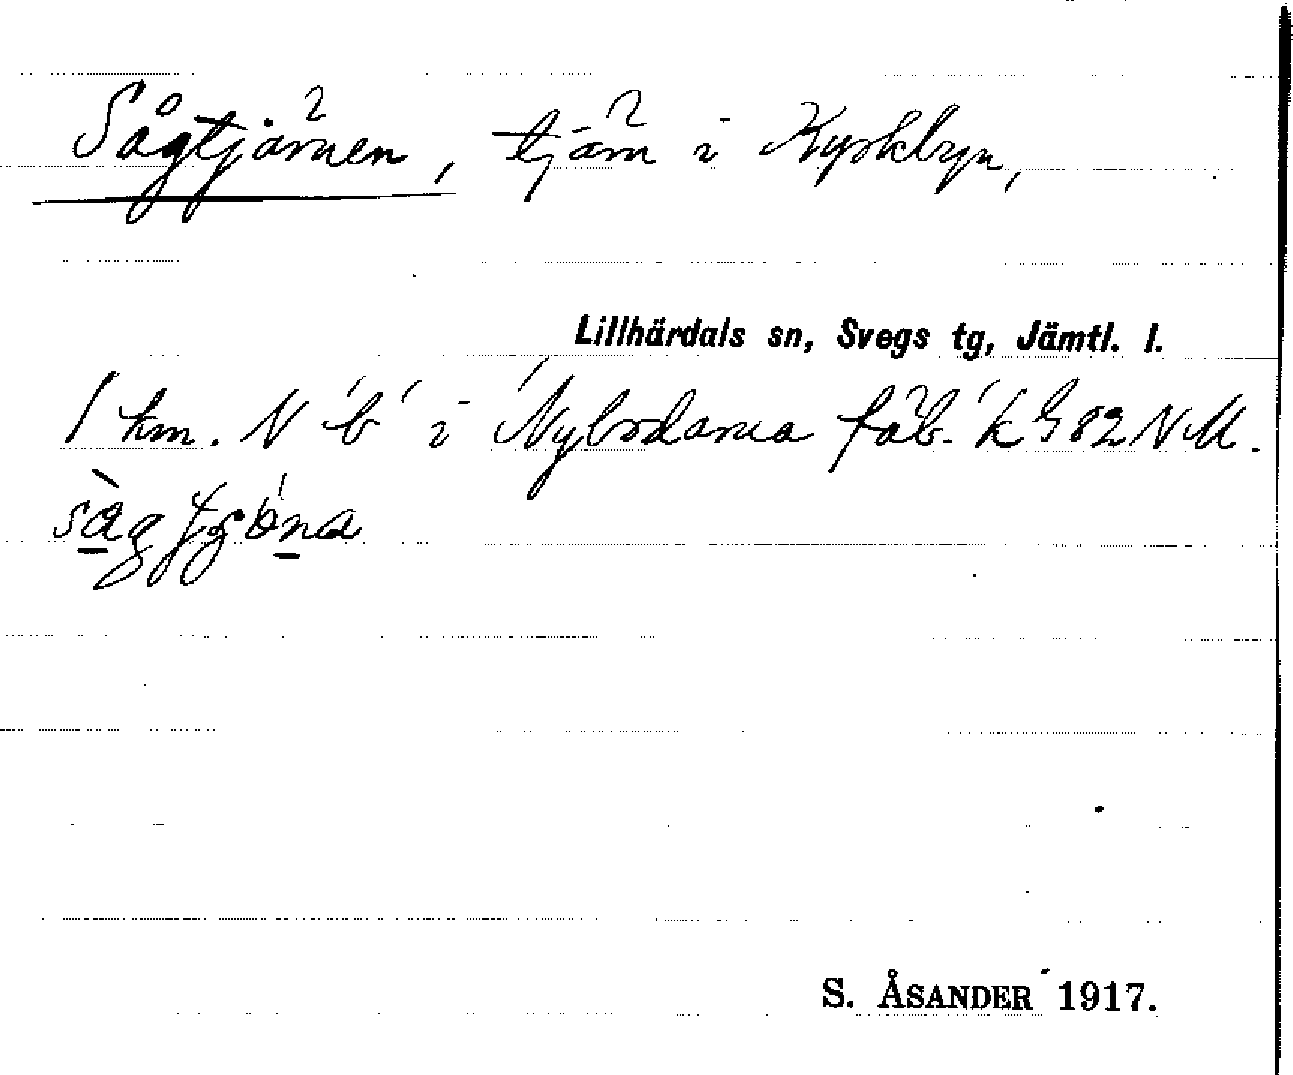 Sågtjärnen, tjärn i Kyrkbyn,
Lillhärdals sn, Svegs tg, Jämtl. l.
1 km. N 'b' i Nybodarna fäb. k G 82 N M.
såg tjöna
S. ÅSANDER 1917.